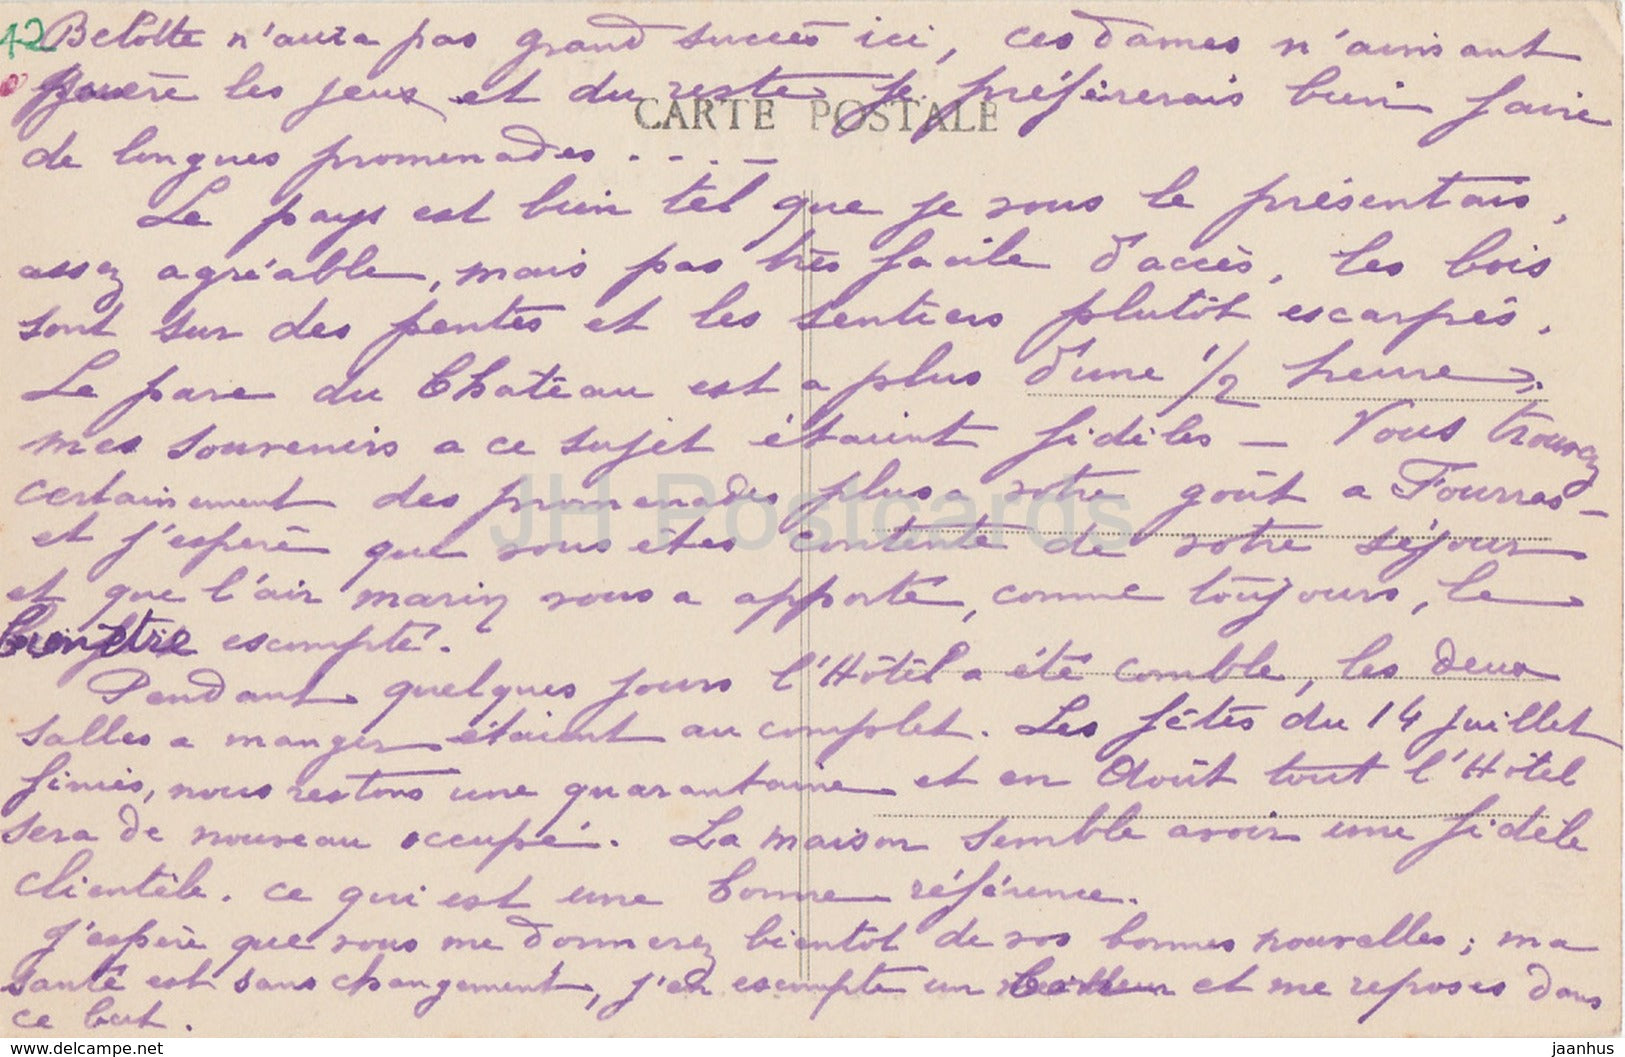 12
Belotte n'aura pas grand succès ici, ces dames n'aimant
guère les jeux et du reste je préfèrerais bien faire
CARTE POSTALE
de longues promenades . . . . —
Le pays est bien tel que je vous le présentais,
assez agréable, mais pas très facile d'accès, les bois
sont sur des pentes et les sentiers plutôt escarpés.
Le parc du Château est a plus d'une 1/2 heure,
mes souvenirs a ce sujet étaient fidèles — Vous trouvez
certainement des promenades plus a votre goût a Fourras —
et j'espère que vous etes contente de votre séjour
et que l'air marin vous a apporté, comme toujours, le
bien être escompté.
Pendant quelques jours l'Hôtel a été comble, les deux
salles a manger étaient au complet. Les fêtes du 14 juillet
finies, nous restons une quarantaine et en Août tout l'Hôtel
sera de nouveau occupé. La maison semble avoir une fidèle
clientèle. ce qui est une bonne référence.
J'espère que vous me donnerez bientôt de vos bonnes nouvelles ; ma
santé est sans changement, j'en escompte un meilleur et me reposes dans
ce but.
JH Postcards
www.delcampe.net
jaanhus